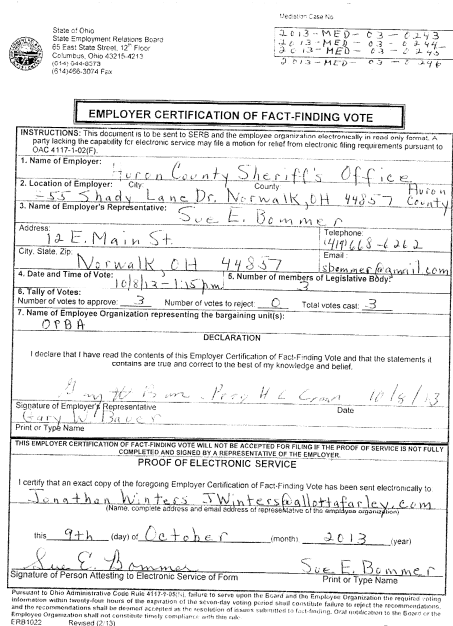 Mediation Case No
State of Ohio
State Employment Relations Board
65 East State Street, 12th Floor
Columbus, Ohio 43215-4213
(614) 644-8573
(614)466-3074 Fax
2013-MED-03-0243
2013-MED-03-0244
2013-MED-03-0245
2013-MED-03-0246
EMPLOYER CERTIFICATION OF FACT-FINDING VOTE
INSTRUCTIONS: This document is to be sent to SERB and the employee organization electronically in read only format. A
party lacking the capability for electronic service may file a motion for relief from electronic filing requirements pursuant to
OAC 4117-1-02(F).
1. Name of Employer:
Huron County Sheriff's Office
2. Location of Employer: City: County
255 Shady Lane Dr. Norwalk, OH 44857 Huron County
3. Name of Employer's Representative:
Sue E. Bommer
Address: Telephone:
12 E. Main St. (419) 668-6262
City, State, Zip: Email:
Norwalk, OH 44857 sbommer@gmail.com
4. Date and Time of Vote: 5. Number of members of Legislative Body:
10/8/13 - 1:15pm 3
6. Tally of Votes:
Number of votes to approve: 3 Number of votes to reject: 0 Total votes cast: 3
7. Name of Employee Organization representing the bargaining unit(s):
OPBA
DECLARATION
I declare that I have read the contents of this Employer Certification of Fact-Finding Vote and that the statements it
contains are true and correct to the best of my knowledge and belief.
10/8/13
Signature of Employer's Representative Date
Gary W. Bauer
Print or Type Name
THIS EMPLOYER CERTIFICATION OF FACT-FINDING VOTE WILL NOT BE ACCEPTED FOR FILING IF THE PROOF OF SERVICE IS NOT FULLY
COMPLETED AND SIGNED BY A REPRESENTATIVE OF THE EMPLOYER.
PROOF OF ELECTRONIC SERVICE
I certify that an exact copy of the foregoing Employer Certification of Fact-Finding Vote has been sent electronically to
Jonathan Winters JWinters@allottafarley.com
(Name, complete address and email address of representative of the employee organization)
this 9th (day) of October (month) 2013 (year)
Sue E. Bommer Sue E. Bommer
Signature of Person Attesting to Electronic Service of Form Print or Type Name
Pursuant to Ohio Administrative Code Rule 4117-9-05(), failure to serve upon the Board and the Employee Organization the required voting
information within twenty-four hours of the expiration of the seven-day voting period shall constitute failure to reject the recommendations,
and the recommendations shall be deemed accepted as the resolution of issues submitted to fact-finding. Oral notification to the Board or the
Employee Organization shall not constitute timely compliance with this rule.
ERB1022 Revised (2/13)